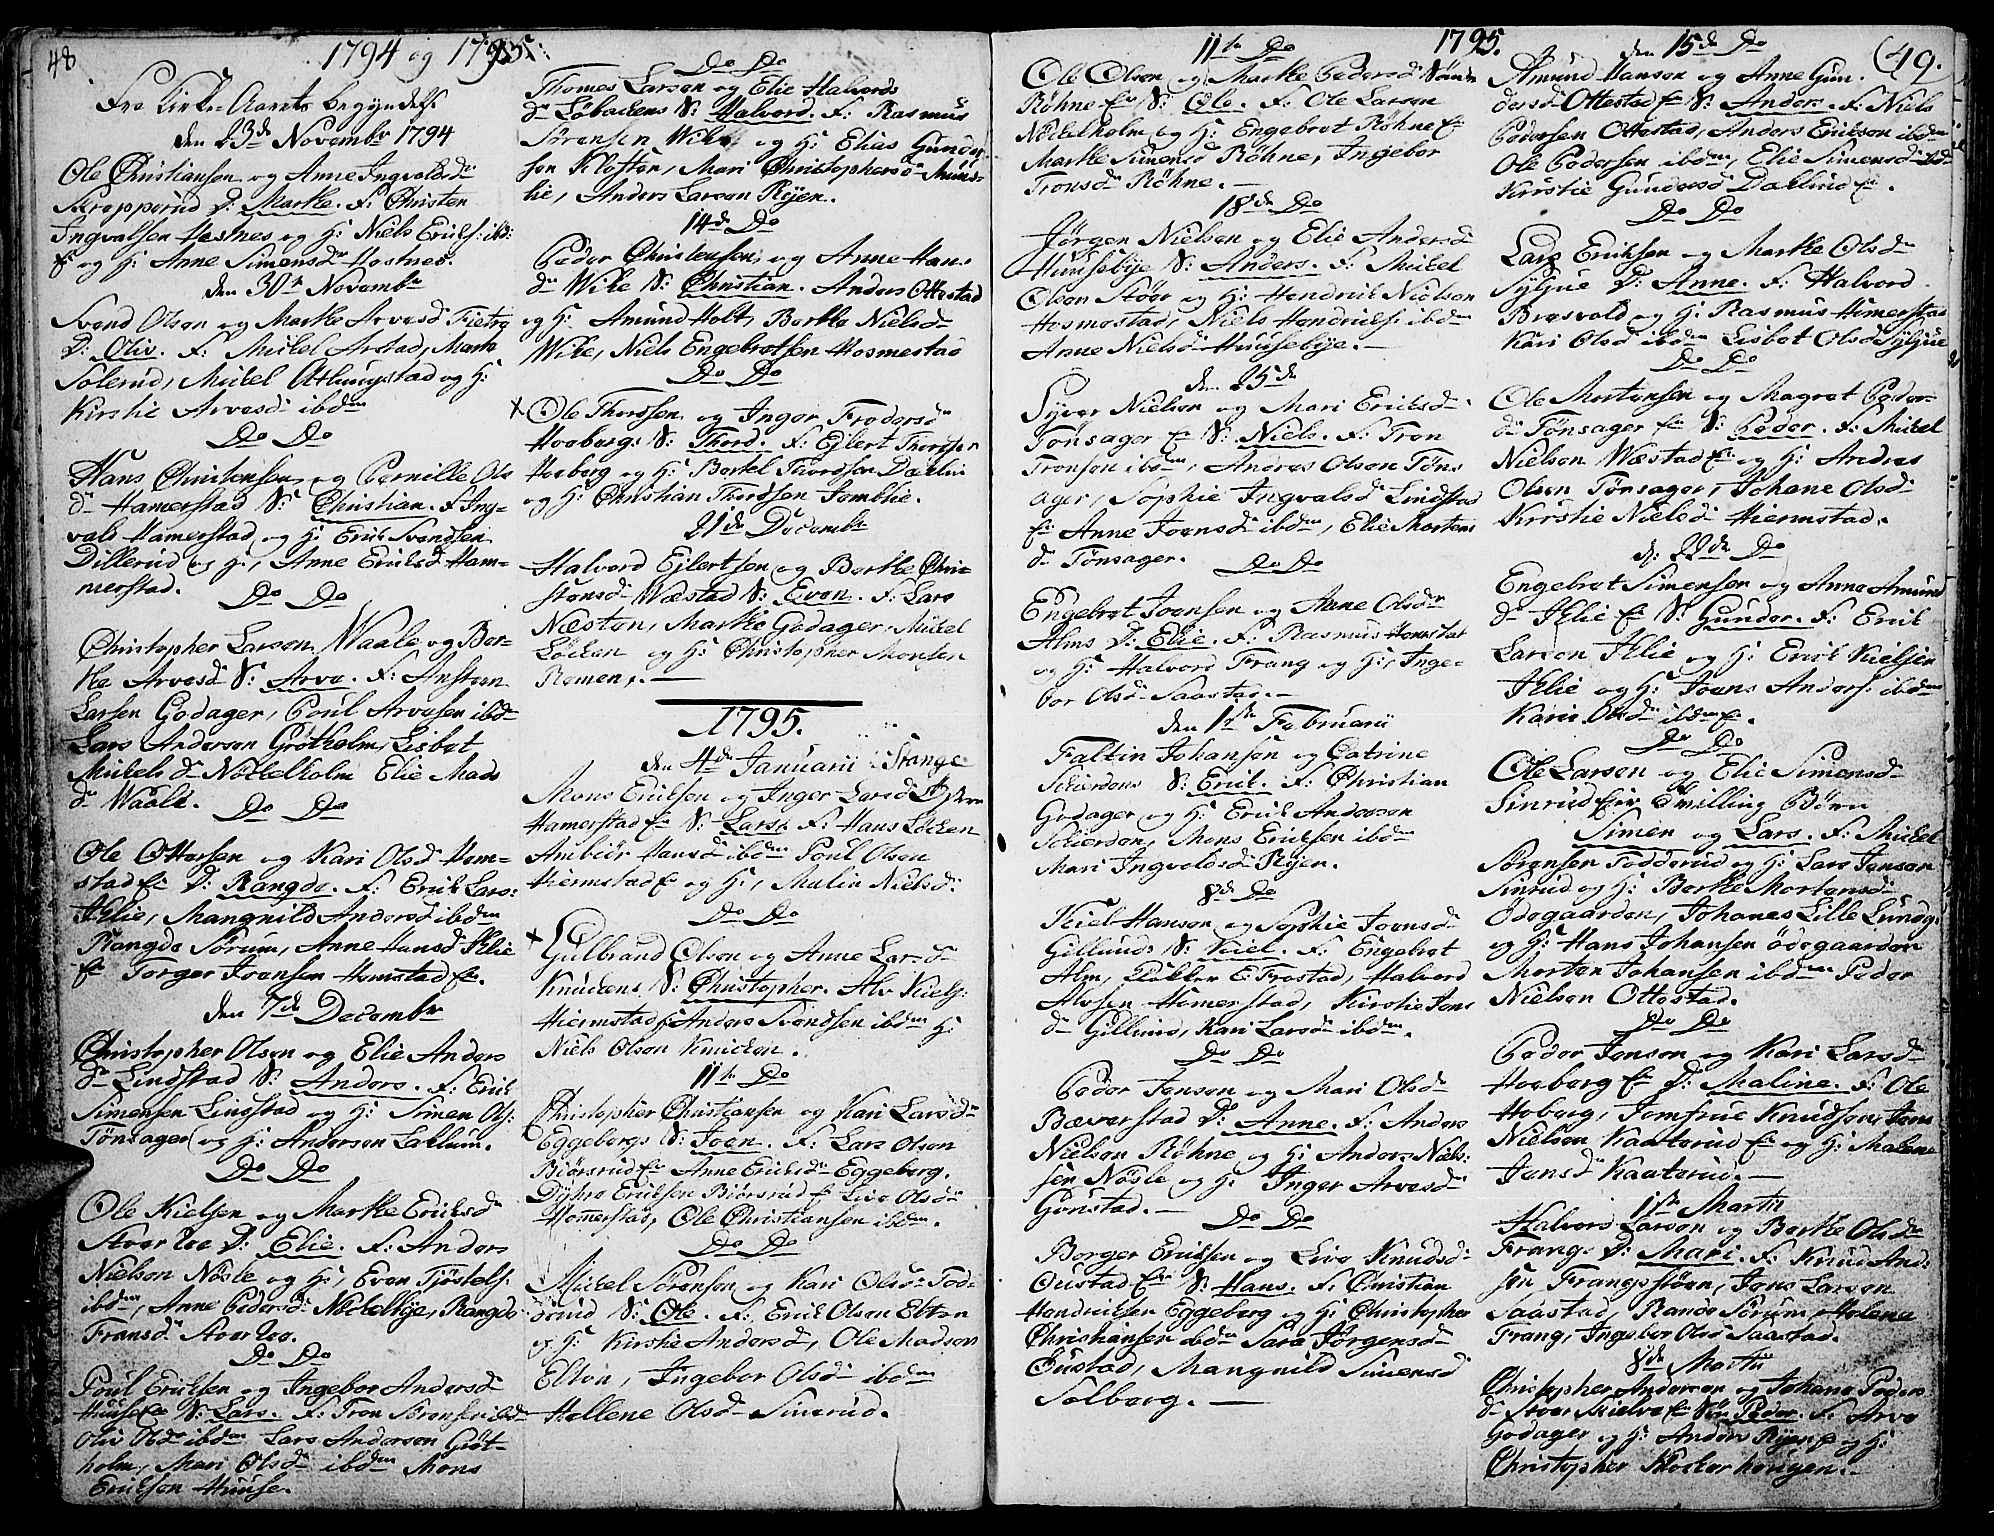 48
1794 og 1795:
Fra Kirke-Aarets begyndelse
den 23de Novembr 1794
Ole Christiansen og Anne Ingvalds d.
Kropperud D: Marthe. F: Christen
Ingvalsen Hosnes og H: Niels Ericks: ibd:
og H: Anne Simensd. Hosnes.
den 30te Novembr
Svend Olsen og Marthe Arvesd.
D: Oliv. F: Mickel Arstad, Marta
Solerud, Mickel Atlungstad og H:
Kirstie Arvesd. ibdm
Do Do
Hans Christensen og Pernille Ols
d. Hamerstad S: Christian. F: Ing-
vald Hamerstad, og H: Erick Svendsen
Dillerud og H:, Anne Ericksd. Ham-
merstad.
Do Do
Christopher Larsen Waale og Ber-
the Arvesd. S: Arve. F: Anstern
Larsen Godager, Poul Arvesen ibd.
Lars Andersen Grøtholm, Lisbet
Mickelsd. Nøckelholm Elie Mads
d. Waale.
Do Do
Ole Ottersen og Kari Olsd. Hom-
stad D: Rangde. F: Erick Lars:
Ihlie, Mangnild Andersd. ibdm
Rangde Sørum, Anne Hansd. Ihlie
Torger Joensen Homstad
den 7de Decembr
Christopher Olsen og Elie Anders
d. Lindstad S: Anders. F: Erick
Simensen Lindstad og H: Simen Ols:
Tønsager og H: Andersen Laklum.
Do Do
Ole Kielsen og Marthe Ericksd.
Stor Roe D: Elie. F: Anders
Nielsen Nøsle og H:, Even Tjøstels:
ibdm, Anne Pedersd. Nøckelbye, Rangde
Fransd. Stor Roe.
Do Do
Poul Ericksen og Ingebor Andersd.
Huuse S: Lars. F: Tron
Oliv Olsd. ibdm Lars Andersen Grøt-
holm, Mari Olsd. ibdm Mons
Ericksen Huuse.
Do Do
Thomas Larsen og Elie Halvords
d. Løbackens S: Halvord. F: Rasmus
Sørensen Wike og H: Elias Gunder
sen Kloften, Mari Christophersd. Muus-
lie, Anders Larsen Ryen.
14de Do
Peder Christensen, og Anne Hans
d. Wike S: Christian. Anders Ottestad
og H: Amund Holt, Berthe Nielsd.
Wike, Niels Engebretsen Hosmestad
Do Do
Ole Thordsen og Inger Fredersd.
Hoebergs S: Thord. F: Ejlert Thordsen
Hoeberg og H: Bertel Thordsen Dæhlin
og H: Christian Thordsen Somblie.
21de Decembr
Halvord Ejlertsen og Berthe Chri-
stensd. Wæstad S: Even. F: Lars
Næsten, Marthe Godager, Mickel
Løcken og H: Christopher Monsen
Romen,. —
1795.
den 4de Januarii i Stange
Mons Ericksen og Inger Larsd.
Hamerstad S: Lars. F: Hans Løcken
Ambiør Hansd. ibdm Poul Olsen
Hiermstad og H:, Malin Nielsd.
Do Do
Gulbrand Olsen og Anne Larsd.
Knuckens S: Christopher. Alv Kiels:
Hiermstad Anders Svendsen ibdm H:
Niels Olsen Knucken.
11te Do
Christopher Christiansen og Kari Larsd.
Eggebergs S: Joen. F: Lars Olsen
Biørsrud Anne Ericksd. Eggeberg,
Dyhre Ericksen Biørsrud Live Olsd.
Hommerstad, Ole Christiansen ibdm.
Do Do
Mickel Sørensen og Kari Olsd. Tod-
derud S: Ole. F: Erick Olsen Elton
og H: Kirstie Andersd., Ole Madsen
Elton, Ingebor Olsd. ibdm
Hellene Olsd. Sinerud.
1795.
(49.
11te Do
Ole Olsen og Marthe Pedersd.
Røhne S: Ole. F: Ole Larsen
Nøckelholm og H: Engebret Røhne
Marthe Simensd. Røhne, Ingebor
Tronsd. Røhne. —
18de Do
Jørgen Nielsen og Elie Andersd.
Huusebye S: Anders. F: Mickel
Olsen Stöer og H: Hendrick Nielsen
Hosmestad, Niels Hendricks: ibdm
Anne Nielsd. Huusebye. —
den 25de
Syver Nielsen og Mari Ericksd.
Tønsager S: Niels. F: Tron
Tronsen ibdm, Andres Olsen Tøns
ager, Sophie Ingvalsd. Lindstad
Anne Joensd. ibdm, Elie Mortens
d. Tønsager.
Do Do
Engebret Joensen og Anne Olsd.
Alms D: Elie. F: Rasmus Homstad
og H: Halvord Frang og H:, Inge-
bor Olsd. Saastad. —
den 1ste Februarii
Faltin Johansen og Catrine
Skierdens S: Erick. F: Christian
Godager og H: Erick Andersen
Skierden, Mons Ericksen ibdm
Mari Ingvaldsd. Ryen.
8de Do
Kiel Hansen og Sophie Joensd.
Gillunds S: Kiel. F: Engebret
Alm, Frostad, Halvord
Alvsen Homerstad, Kirstie Jons
d. Gillund, Kari Larsd. ibdm.
Do Do
Peder Jensen og Mari Olsd.
Bæverstad D: Anne. F: Anders
Nielsen Røhne og H: Anders Niel-
sen Nøsle og H: Inger Arvesd.
Gønstad. —
Do Do
Borger Ericksen og Live Knudsd.
Oustad S: Hans. F: Christian
Hendricksen Eggeberg og H: Christopher
Christiansen ibdm Sara Jørgensd.
Oustad, Mangnild Simensd.
Solberg. —
den 15de Do
Amund Hansen og Anne Gun-
dersd. Ottestad S: Anders. F: Niels
Pedersen Ottestad, Anders Ericksen ibdm
Ole Pedersen ibdm, Elie Simensd. ibd.
Kirstie Gundersd. Dæhlind.
Do Do
Lars Ericksen og Marthe Olsd.
Syljue D: Anne. F: Halvord
Bræsvold og H: Rasmus Homerstad
Kari Olsd. ibdm Lisbet Olsd. Syljue
Do Do
Ole Mortensen og Magret Peder-
d. Tønsager S: Peder. F: Mickel
Nielsen Wæstad og H: Andres
Olsen Tønsager, Johane Olsd.
Kirstie Nielsd. Hiermstad.
d: 22de Do
Engebret Simensen og Anne Amund
d. Ihlie S: Gunder. F: Erick
Larsen Ihlie og H: Erick Kielsen
Ihlie og H: Joens Anders: ibdm
Karie Olsd. ibdm.
Do Do
Ole Larsen og Elie Simensd.
Sinrud Tvilling Børn
Simen og Lars. F: Mickel
Sørensen Todderud og H: Lars Jensen
Sinrud og H: Berthe Mortensd.
Ødegaarden, Johanes Lille Lundg.
og H: Hans Johansen Ødegaarden
Morten Johansen ibdm Peder
Nielsen Ottestad.
Do Do
Peder Jensen og Kari Larsd.
Hoeberg D: Maline. F: Ole
Hoberg, Jomfrue Knudsen, Jens
Nielsen Kaaterud og H: Malene
Jansd. Kaaterud. —
1ste Martii
Halvord Larsen og Berthe Olsd.
Frangs D: Mari. F: Knud And-
sen Frangssøen, Jens Larsen
Saastad, Rande Sørum, Helene
Frang, Ingebor Olsd. Saastad.
8de Martii
Christopher Andersen og Johane Peders
d. Stoer Skielve S: Peder. F: Arve
Godager og H: Anders Ryen og H:
Christopher Klocker hougen. —